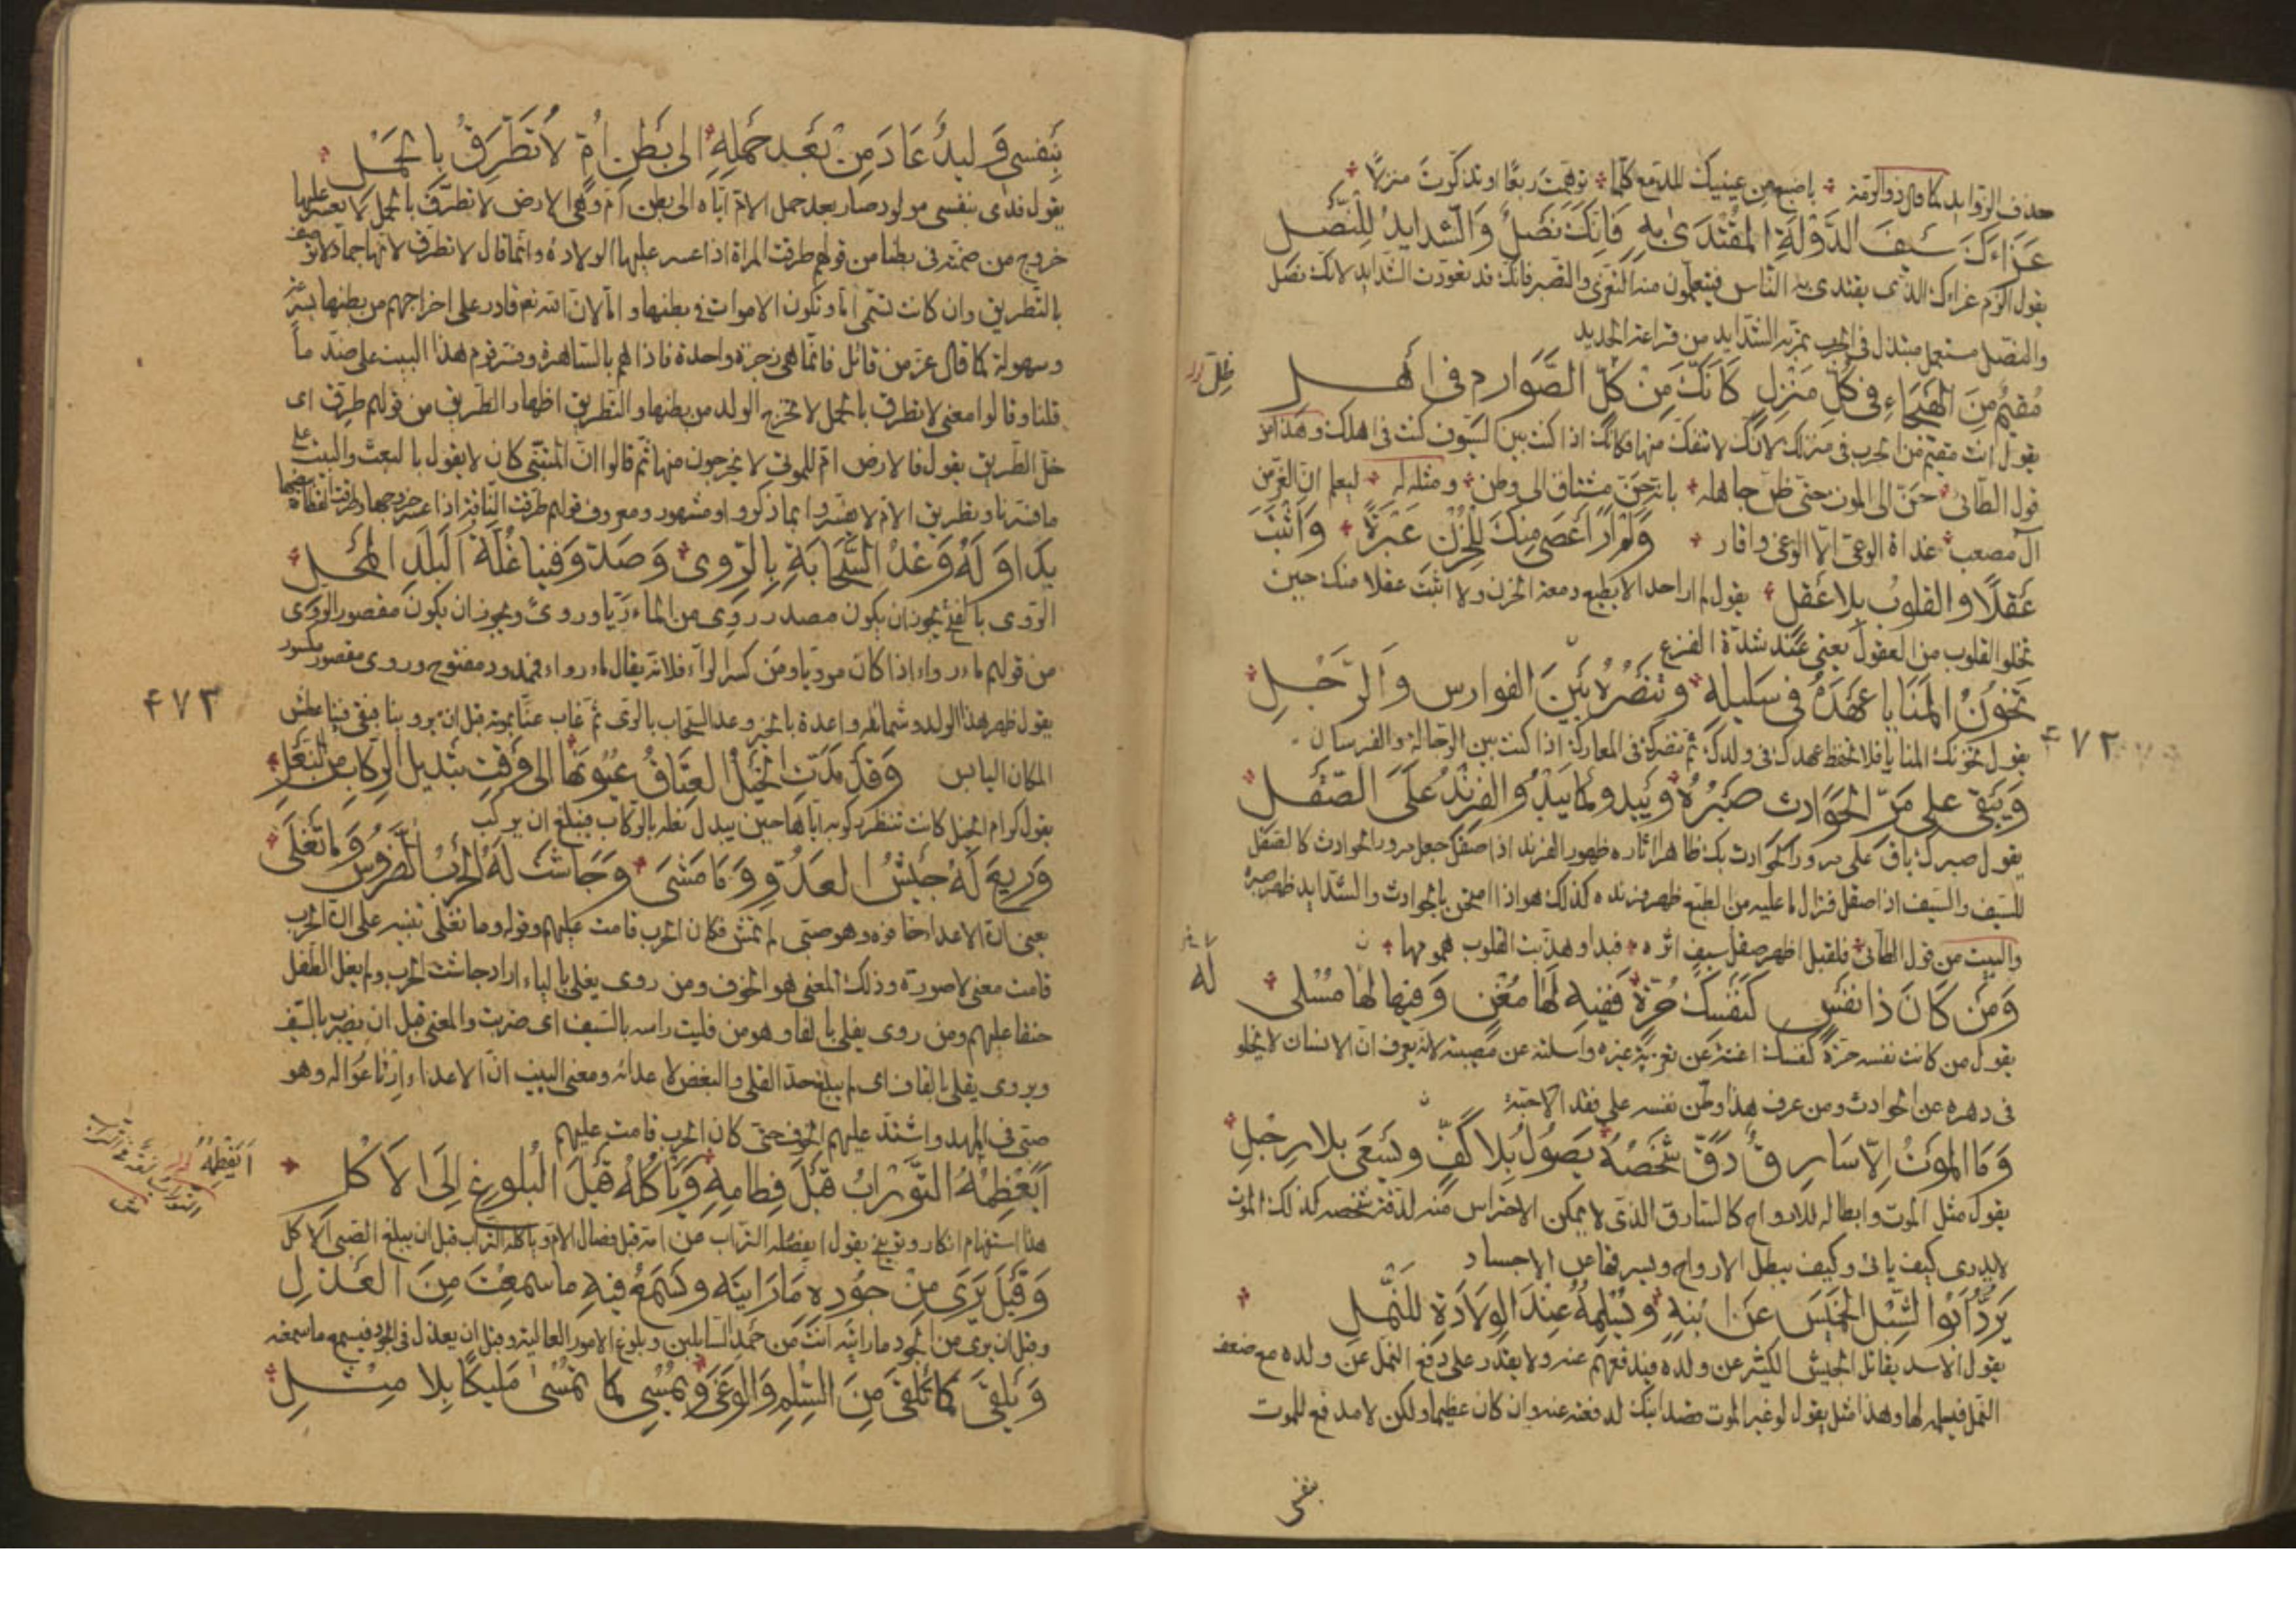 حذف الزوايد كما قال ذو الرمة باضبع من عينيك للدمع كلما توهمت ربعا او تذكرت منزلا
عَزَاءَكَ سَيْفَ الدَّوْلَةِ الْمُقْتَدَى بِهِ فَإِنَّكَ نَصْلٌ وَالشَّدَايِدُ لِلنَّصْلِ
يقول الزم عزاءك الذى يقتدى به الناس فيتعلمون منه التعزى والصبر فانك قد تعودت الشدايد لانك نصل
والنصل مستعمل مبتذل فى الحرب تمر به الشدايد من قراعة الحديد
مُقِيمٌ مِنَ الْهَيْجَاءِ فِى كُلِّ مَنْزِلٍ كَأَنَّكَ مِنْ كُلِّ الصَّوَارِمِ فِى أَهْلِ
يقول انت مقيم من الحرب فى منزلك لانك لا تنفك منها وكانك اذا كنت بين السيوف كنت فى اهلك وهذا من
قول الطائى حن الى الموت حتى ظن جاهله بانه حن مشتاق الى وطن ومثله له ليعلم ان الغر من
آل مصعب غداة الوغى آل الوغى واقاربه وَلَمْ أَرَ أَعْصَى مِنْكَ لِلْحُزْنِ عَبْرَةً وَأَثْبَتَ
عَقْلًا وَالقلوبُ بِلا عَقْلِ يقول لم ار احدا لا يطيع دمعه الحزن ولا اثبت عقلا منك حين
تخلو القلوب من العقول يعنى عند شدة الفزع
تَخُونُ الْمَنَايَا عَهْدَهُ فِى سَلِيلِهِ وَتَنْصُرُهُ بَيْنَ الفوارس وَالرَّجْلِ
يقول تخونك المنايا فلا تحفظ عهدك فى ولدك ثم تنصرك فى المعارك اذا كنت بين الرجالة والفرسان
٤٧٢
وَيَبْقَى عَلَى مَرِّ الْحَوَادِثِ صَبْرُهُ وَيَبْدُو كَمَا يَبْدُو الفِرِنْدُ عَلَى الصَّقْلِ
يقول صبرك باق على مرور الحوادث بك ظاهرا اثاره ظهور الفرند اذا صقل جعل مرور الحوادث كالصقل
للسيف والسيف اذا صقل فزال ما عليه من الطبع ظهر فرنده كذلك هو اذا امتحن بالحوادث والشدايد ظهر صبره
والبيت من قول الطائى فلقبل اظهر صقل سيف اثره فبدا وهذبت القلوب همومها
وَمَنْ كَانَ ذَا نَفْسٍ كَنَفْسِكَ حُرَّةٍ فَفِيهِ لَهَا مُغْنٍ وَفِيهَا لَهَا مُسْلِى
له
يقول من كانت نفسه حرة كنفسك اغنته عن تعزية غيره واسلته عن مصيبة لانه يعرف ان الانسان لا يخلو
فى دهره عن الحوادث ومن عرف هذا وطن نفسه على فقد الاحبة
وَمَا الْمَوْتُ إِلَّا سَارِقٌ دَقَّ شَخْصُهُ يَصُولُ بِلَا كَفٍّ وَيَسْعَى بِلا رِجْلِ
يقول مثل الموت وابطاله للارواح كالسارق الذى لا يمكن الاحتراس منه لدقة شخصه كذلك الموت
لا يدرى كيف ياتى وكيف يبطل الارواح ويسرقها من الاجساد
يَرُدُّ أَبُو الشِّبْلِ الْخَمِيسَ عَنِ ابْنِهِ وَيُسْلِمُهُ عِنْدَ الوِلَادَةِ لِلنَّمْلِ
يقول الاسد يقاتل الجيش الكثير عن ولده فيدفعهم عنه ولا يقدر على دفع النمل عن ولده مع ضعف
النمل فيسلمه لها وهذا مثل يقول لو غير الموت قصد ابنك لدفعته عنه وان كان عظيما ولكن لا مدفع للموت
بنفسى
بِنَفْسِى وَلِيدٌ عَادَ مِنْ بَعْدِ حَمْلِهِ إِلَى بَطْنِ أُمٍّ لَا تُطَرِّقُ بِالْحَمْلِ
يقول فدى بنفسى مولود صار بعد حمل الام اياه الى بطن ام وهى الارض لا تطرق بالحمل لا يعسر عليها
خروج من ضمته فى بطنها من قولهم طرقت المراة اذا عسر عليها الولادة وانما قال لا تطرق لانها جماد لا توصف
بالتطريق وان كانت تسمى اما وتكون الاموات فى بطنها و اما لان الله تعالى قادر على اخراجهم من بطنها بسرعة
وسهولة كما قال عز من قائل فانما هى زجرة واحدة فاذا هم بالساهرة وفسر قوم هذا البيت على ضد ما
قلنا وقالوا معنى لا تطرق بالحمل لا تخرج الولد من بطنها والتطريق اظهار الطريق من قولهم طرق اى
خل الطريق يقول فالارض ام للموتى لا يخرجون منها ثم قالوا ان المتنبى كان لا يقول بالبعث والبيت على
ما فسرنا وتطريق الام لا يفسر بما ذكروا ومشهور ومعروف قولهم طرقت الناقة اذا عسر خروجها وطرقت القطاة ببيضها
بَدَا وَلَهُ وَعْدُ السَّحَابَةِ بِالرَّوَى وَصَدَّ وَفِينَا غُلَّةُ الْبَلَدِ الْمَحْلِ
الروى بالفتح يجوز ان يكون مصدر روى من الماء ريا وروى ويجوز ان يكون مقصور الرواء
من قولهم ماء رواء اذا كان مرويا ومن كسر الراء فلانه يقال ماء رواء ممدود مفتوح وروى مقصور مكسور
يقول ظهر هذا الولد وشمائله واعدة بالخير وعد السحاب بالروى ثم غاب عنا بموته قبل ان يروينا فبقى فينا عطش
٤٧٣
المكان اليابس وَقَدْ مَدَّتِ الْخَيْلُ الْعِتَاقُ عُيُونَهَا إِلَى وَقْتِ تَبْدِيلِ الرِّكَابِ مِنَ النَّعْلِ
يقول كرام الخيل كانت تنتظر ركوبه اياها حين يبدل نعله بالركاب فيبلغ ان يركب
وَرِيعَ لَهُ جَيْشُ العَدُوِّ وَمَا مَشَى وَجَاشَتْ لَهُ الْحَرْبُ الضَّرُوسُ وَمَا تَغْلِى
يعنى ان الاعداء خافوه وهو صبى لم يمش فكان الحرب قامت عليهم وقوله وما تغلى تنبيه على ان الحرب
قامت معنى لا صورة وذلك المعنى هو الخوف ومن روى يغلى بالياء اراد جاشت الحرب ولم يغل الطفل
حنقا عليهم ومن روى يفلى بالفاء وهو من فليت راسه بالسيف اى ضربت والمعنى قبل ان يضرب بالسيف
ويروى يقلى بالقاف اى لم يبلغ حد القلى والبغض لاعدائه ومعنى البيت ان الاعداء ارتاعوا له وهو
صبى فى المهد واشتد عليهم الخوف حتى كان الحرب قامت عليهم
أَيَفْطِمُهُ التَّوْرَابُ قَبْلَ فِطَامِهِ وَيَأْكُلُهُ قَبْلَ البُلُوغِ إِلَى الْأَكْلِ
هذا استفهام انكار وتوبيخ يقول ايفطمه التراب من امه قبل فصال الام وياكله التراب قبل ان يبلغ الصبى الاكل
وَقَبْلَ يَرَى مِنْ جُودِهِ مَا رَأَيْتَهُ وَيَسْمَعُ فِيهِ مَا سَمِعْتَ مِنَ الْعَذْلِ
وقبل ان يرى من الجود ما رايته انت من حمد السايلين وبلوغ الامور العالية وقبل ان يعذل فى الجود فيسمع ما سمعته
وَيَلْقَى كَمَا تَلْقَى مِنَ السِّلْمِ وَالْوَغَى وَيُمْسِى كَمَا تُمْسِى مَلِيكًا بِلا مِثْلِ